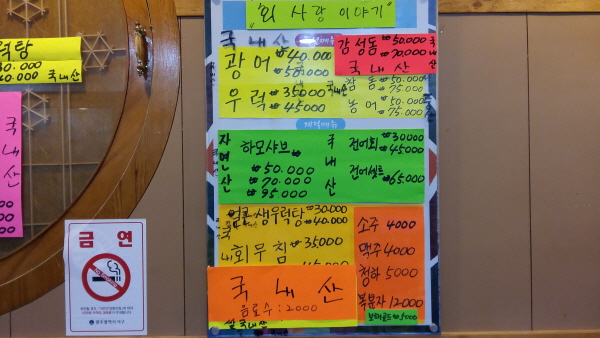 "회 사랑 이야기"
국내산
광어 ₩40.000
₩50.000
우럭 35000
45000
국내산
감성돔 ₩50.000
₩70.000
국내산
참돔 50.000
75.000
농어 50.000
75.000
자연산
하모샤브
₩50.000
₩70.000
₩95.000
국내산
전어회 ₩30000
₩45000
전어셋트
₩65.000
얼큰새우럭탕 ₩30.000
₩40.000
회무침 ₩35000
45000
국내산
음료수 : 2000
쌀 국내산
소주 4000
맥주 4000
청하 5000
복분자 12000
₩5000
럭탕
30.000
40.000 국내산
국내산
금연